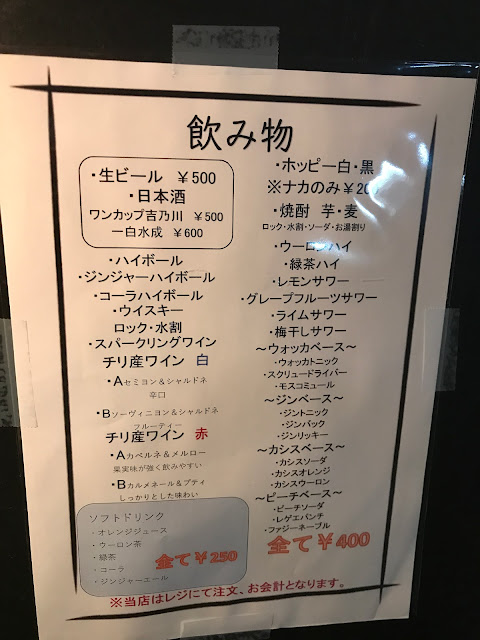 飲み物
・生ビール ￥500
・日本酒
ワンカップ吉乃川 ￥500
一白水成 ￥600
・ハイボール
・ジンジャーハイボール
・コーラハイボール
・ウイスキー
ロック・水割
・スパークリングワイン
チリ産ワイン 白
・Aセミヨン＆シャルドネ
辛口
・Bソーヴィニヨン＆シャルドネ
フルーティー
チリ産ワイン 赤
・Aカベルネ＆メルロー
果実味が強く飲みやすい
・Bカルメネール＆プティ
しっかりとした味わい
ソフトドリンク
・オレンジジュース
・ウーロン茶
・緑茶
・コーラ
・ジンジャーエール
全て￥250
・ホッピー白・黒
※ナカのみ
・焼酎 芋・麦
ロック・水割・ソーダ・お湯割り
・ウーロンハイ
・緑茶ハイ
・レモンサワー
・グレープフルーツサワー
・ライムサワー
・梅干しサワー
～ウォッカベース～
・ウォッカトニック
・スクリュードライバー
・モスコミュール
～ジンベース～
・ジントニック
・ジンバック
・ジンリッキー
～カシスベース～
・カシスソーダ
・カシスオレンジ
・カシスウーロン
～ピーチベース～
・ピーチソーダ
・レゲエパンチ
・ファジーネーブル
全て￥400
※当店はレジにて注文、お会計となります。